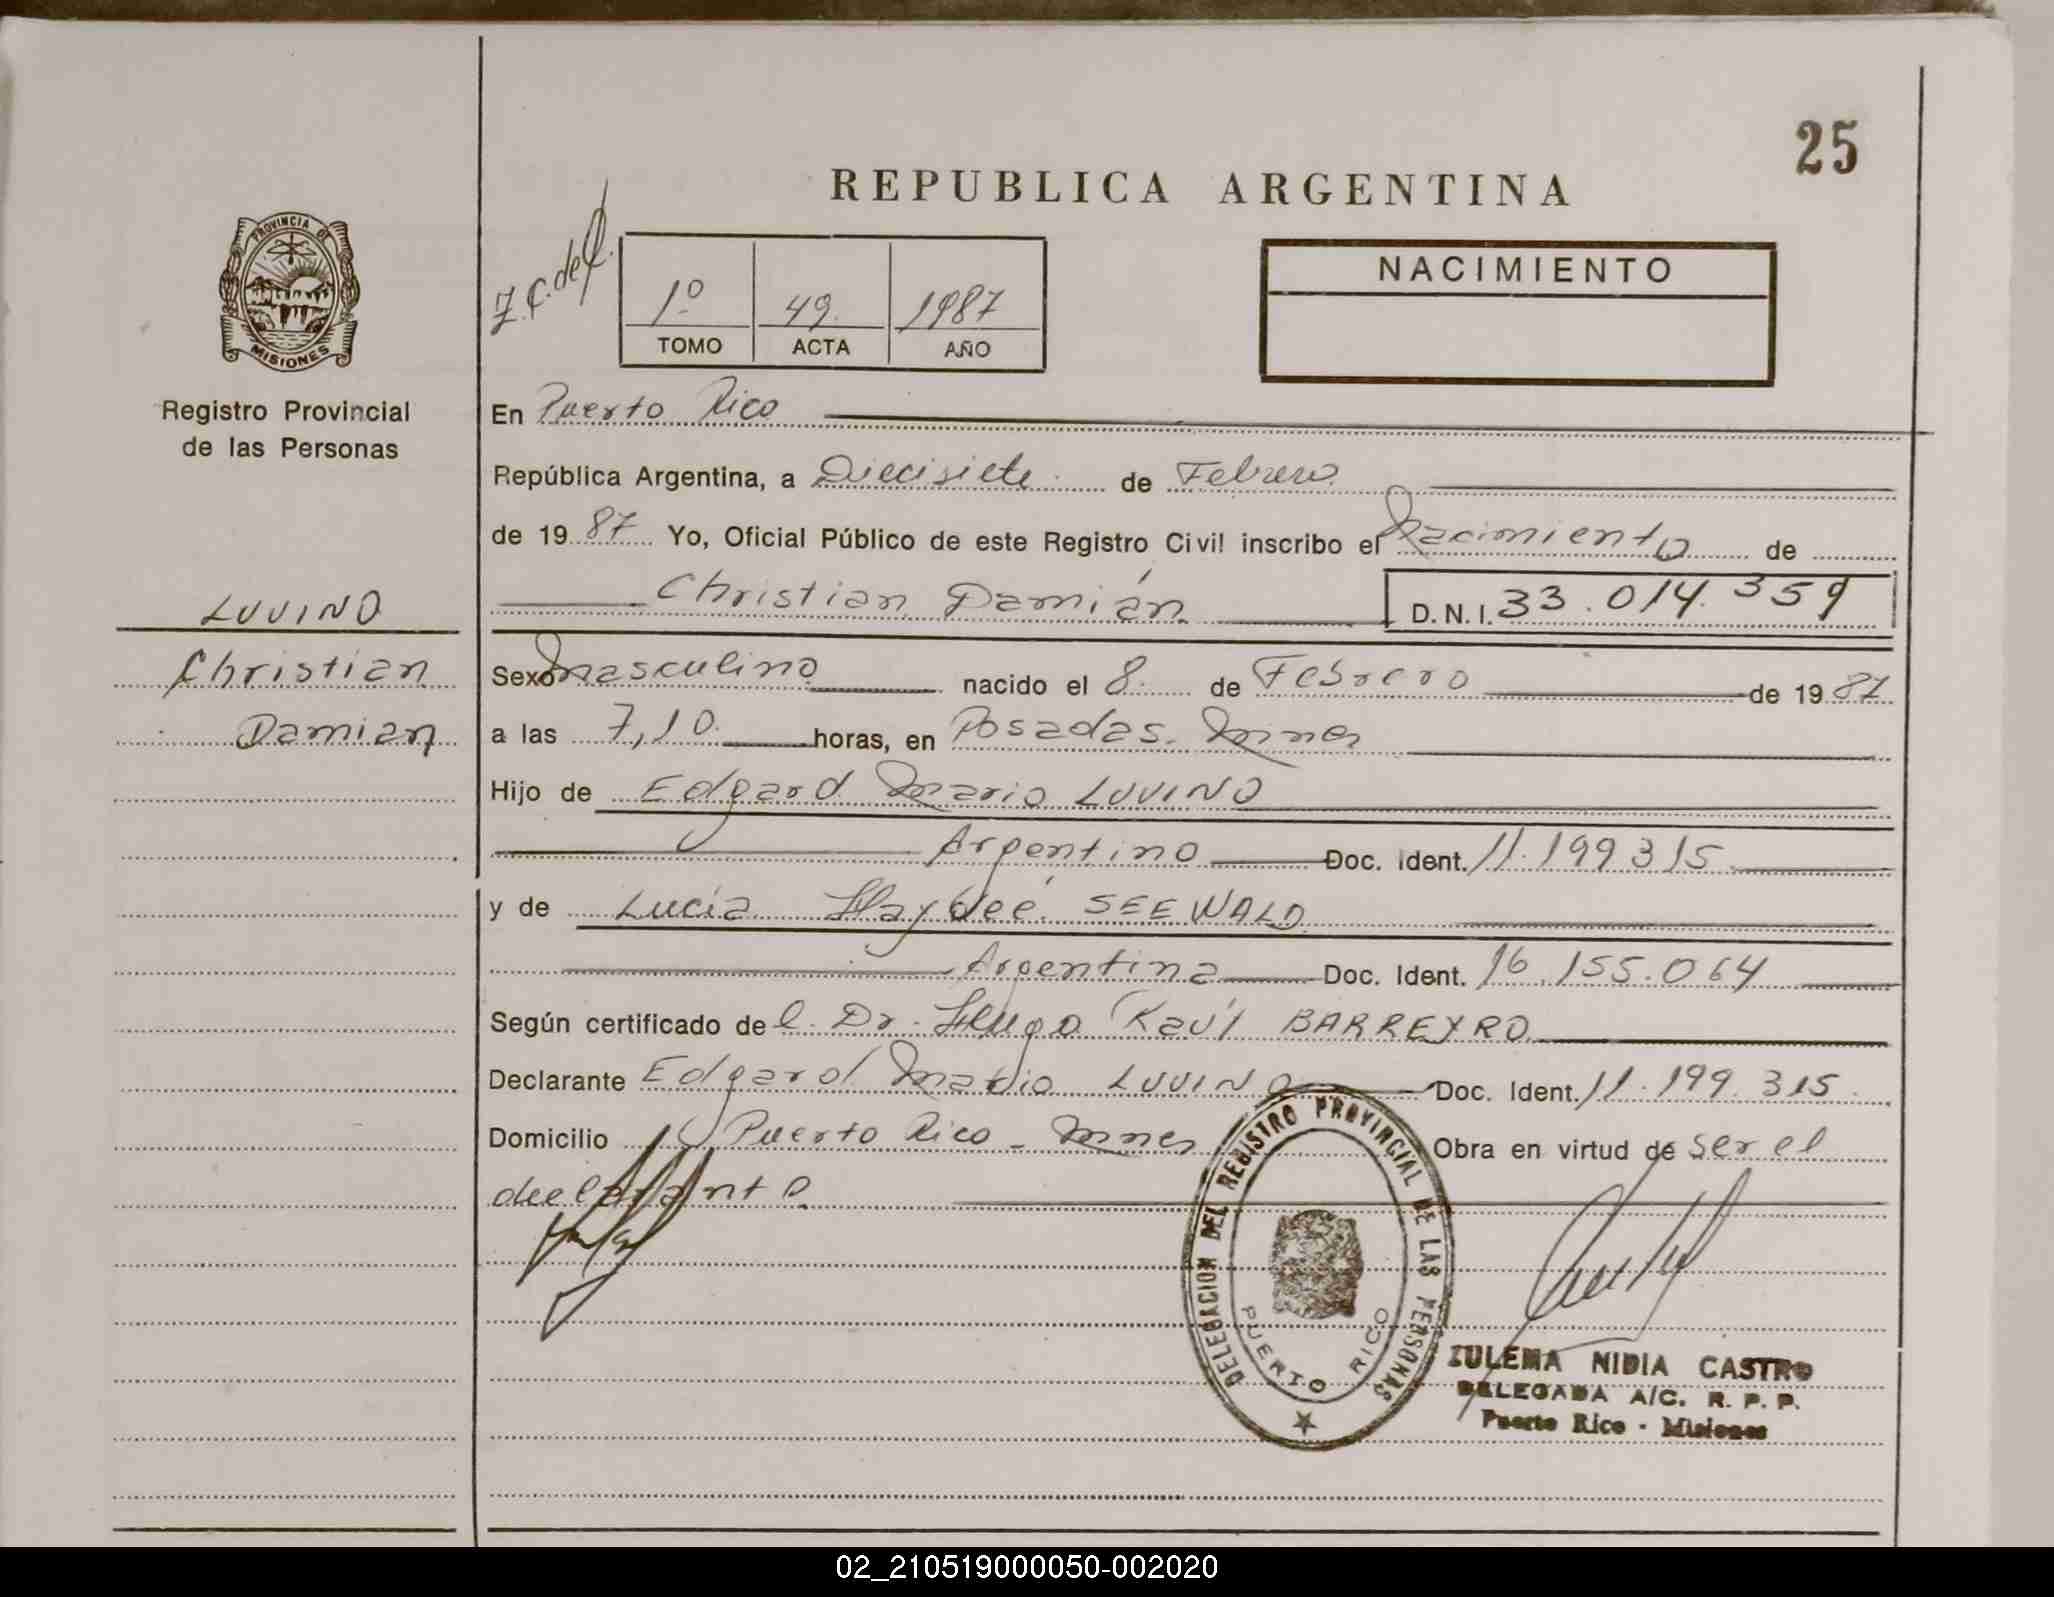 25
REPUBLICA ARGENTINA
PROVINCIA DE
MISIONES
Registro Provincial
de las Personas
1º 49. 1987
TOMO ACTA AÑO
NACIMIENTO
En Puerto Rico
República Argentina, a Diecisiete de Febrero
de 1987 Yo, Oficial Público de este Registro Civil inscribo el Nacimiento de
Christian Damián D. N. I. 33.014.359
LUVINO
Christian
Damian
Sexo Masculino nacido el 8 de Febrero de 1987
a las 7,10 horas, en Posadas. Mnes
Hijo de Edgard Mario LUVINO
Argentino Doc. Ident. 11.199315
y de Lucía Haydeé SEEWALD
Argentina Doc. Ident. 16.155.064
Según certificado de l. Dr. Hugo Raúl BARREYRO
Declarante Edgard Mario LUVINO Doc. Ident. 11.199.315
Domicilio Puerto Rico - Mnes Obra en virtud de ser el
declarante
DELEGACION DEL REGISTRO PROVINCIAL DE LAS PERSONAS
PUERTO RICO
ZULEMA NIDIA CASTRO
DELEGADA A/C. R. P. P.
Puerto Rico - Misiones
02_210519000050-002020